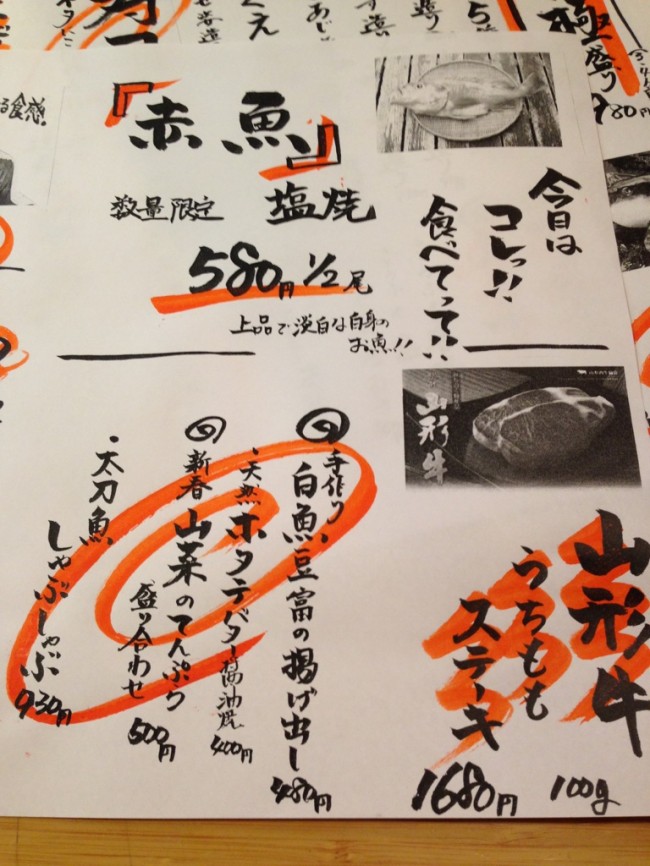 『赤魚』
数量限定 塩焼
580円 1/2尾
上品で淡白な白身の
お魚!!
今日は
コレっ!!
食べてって!!
山形牛
山形牛
うちもも
ステーキ
1680円 100g
手作り
白魚豆富の揚げ出し
480円
・天然
ホタテバター醤油焼
400円
新春
山菜のてんぷら
盛り合わせ
500円
・太刀魚
しゃぶしゃぶ
930円
る食感.
極盛り
980円